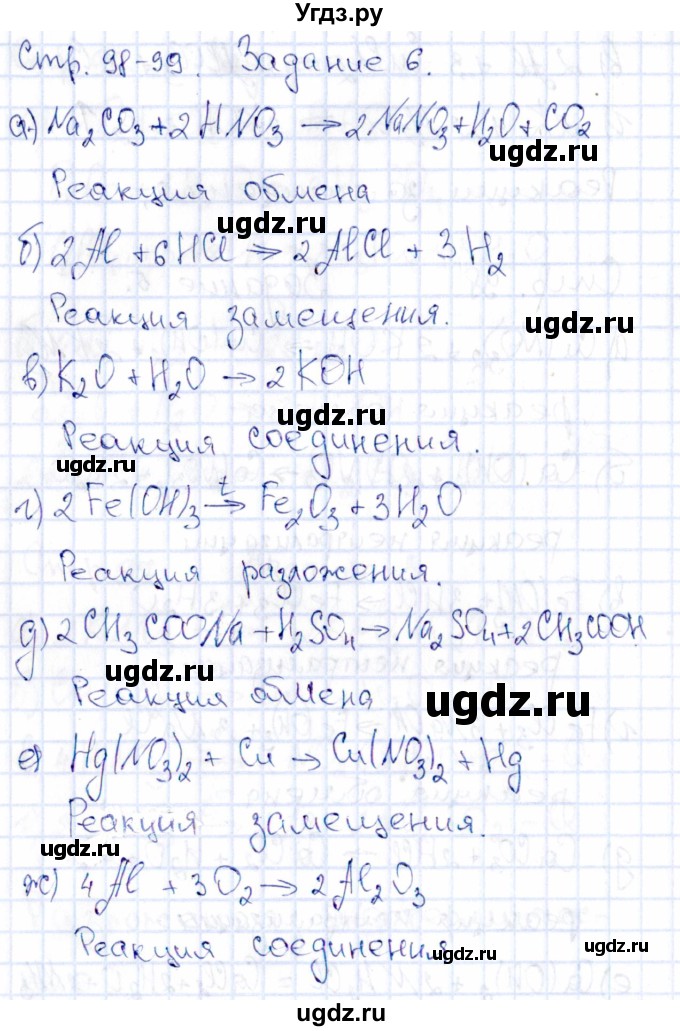 Угдз.ру
Стр. 98-99. Задание 6.
а) Na₂CO₃ + 2HNO₃ → 2NaNO₃ + H₂O + CO₂
ugdz.ru
Реакция обмена
ugdz.ru
б) 2Al + 6HCl → 2AlCl + 3H₂
Реакция замещения.
ugdz.ru
в) K₂O + H₂O → 2KOH
ugdz.ru
Реакция соединения.
ugdz.ru
г) 2Fe(OH)₃ →ᵗ Fe₂O₃ + 3H₂O
Реакция разложения.
д) 2CH₃COONa + H₂SO₄ → Na₂SO₄ + 2CH₃COOH
ugdz.ru
Реакция обмена
ugdz.ru
е) Hg(NO₃)₂ + Cu → Cu(NO₃)₂ + Hg
Реакция замещения.
ugdz.ru
ж) 4Al + 3O₂ → 2Al₂O₃
Реакция соединения
ugdz.ru
ugdz.ru